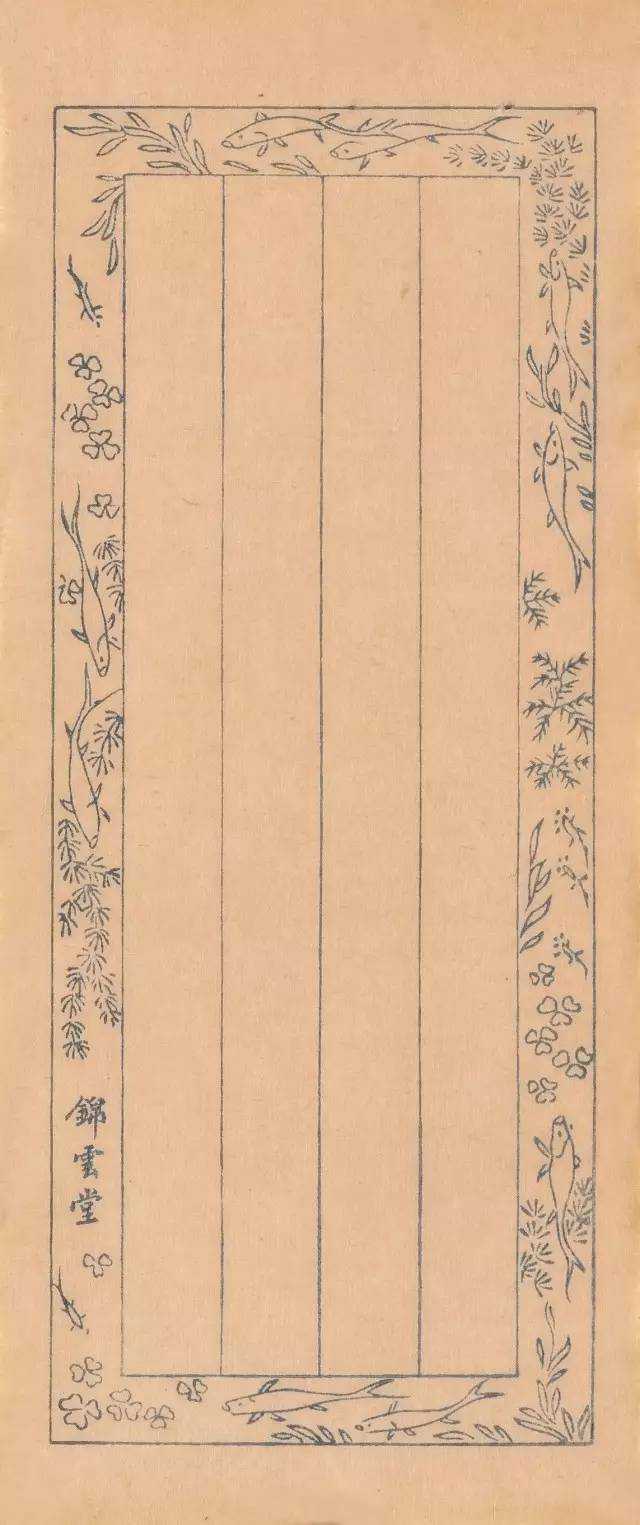 錦雲堂